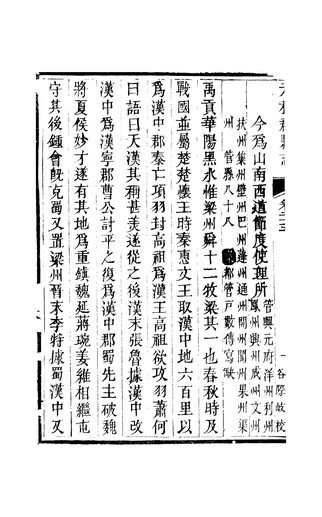 今爲山南西道節度使理所 管興元府洋州利州
鳳州興州成州文州
一 谷際岐校
扶州集州壁州巴州蓬州通州開州閬州果州渠
州 管縣八十八 都管戶數傳寫缺
禹貢華陽黑水惟梁州舜十二牧梁其一也春秋時及
戰國並屬楚楚懷王時秦惠文王取漢中地六百里以
爲漢中郡秦亡項羽封高祖爲漢王高祖欲攻羽蕭何
曰語曰天漢其稱甚美遂從之後漢末張魯據漢中改
漢中爲漢寧郡曹公討平之復爲漢中郡蜀先主破魏
將夏侯妙才遂有其地爲重鎮魏延蔣琬姜維相繼屯
守其後鍾會旣克蜀又置梁州晉末李特據蜀漢中又